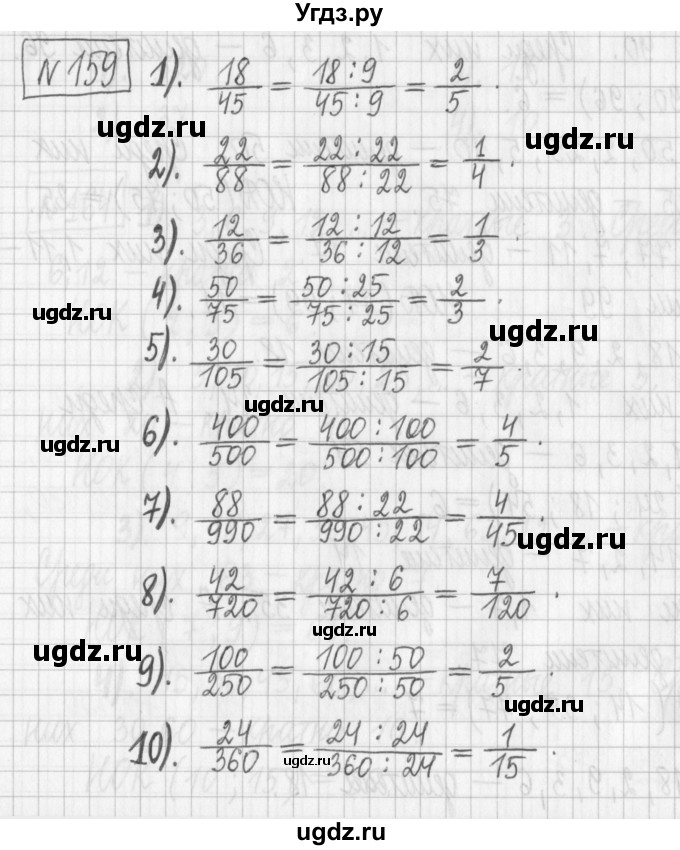 Угдз.ру
№ 159 1). 18/45 = 18:9/45:9 = 2/5.
ugdz.ru ugdz.ru
2). 22/88 = 22:22/88:22 = 1/4.
3). 12/36 = 12:12/36:12 = 1/3.
4). 50/75 = 50:25/75:25 = 2/3.
ugdz.ru ugdz.ru
5). 30/105 = 30:15/105:15 = 2/7.
ugdz.ru
6). 400/500 = 400:100/500:100 = 4/5.
ugdz.ru
7). 88/990 = 88:22/990:22 = 4/45.
ugdz.ru
8). 42/720 = 42:6/720:6 = 7/120.
ugdz.ru
ugdz.ru
9). 100/250 = 100:50/250:50 = 2/5.
ugdz.ru
10). 24/360 = 24:24/360:24 = 1/15.
ugdz.ru
ugdz.ru